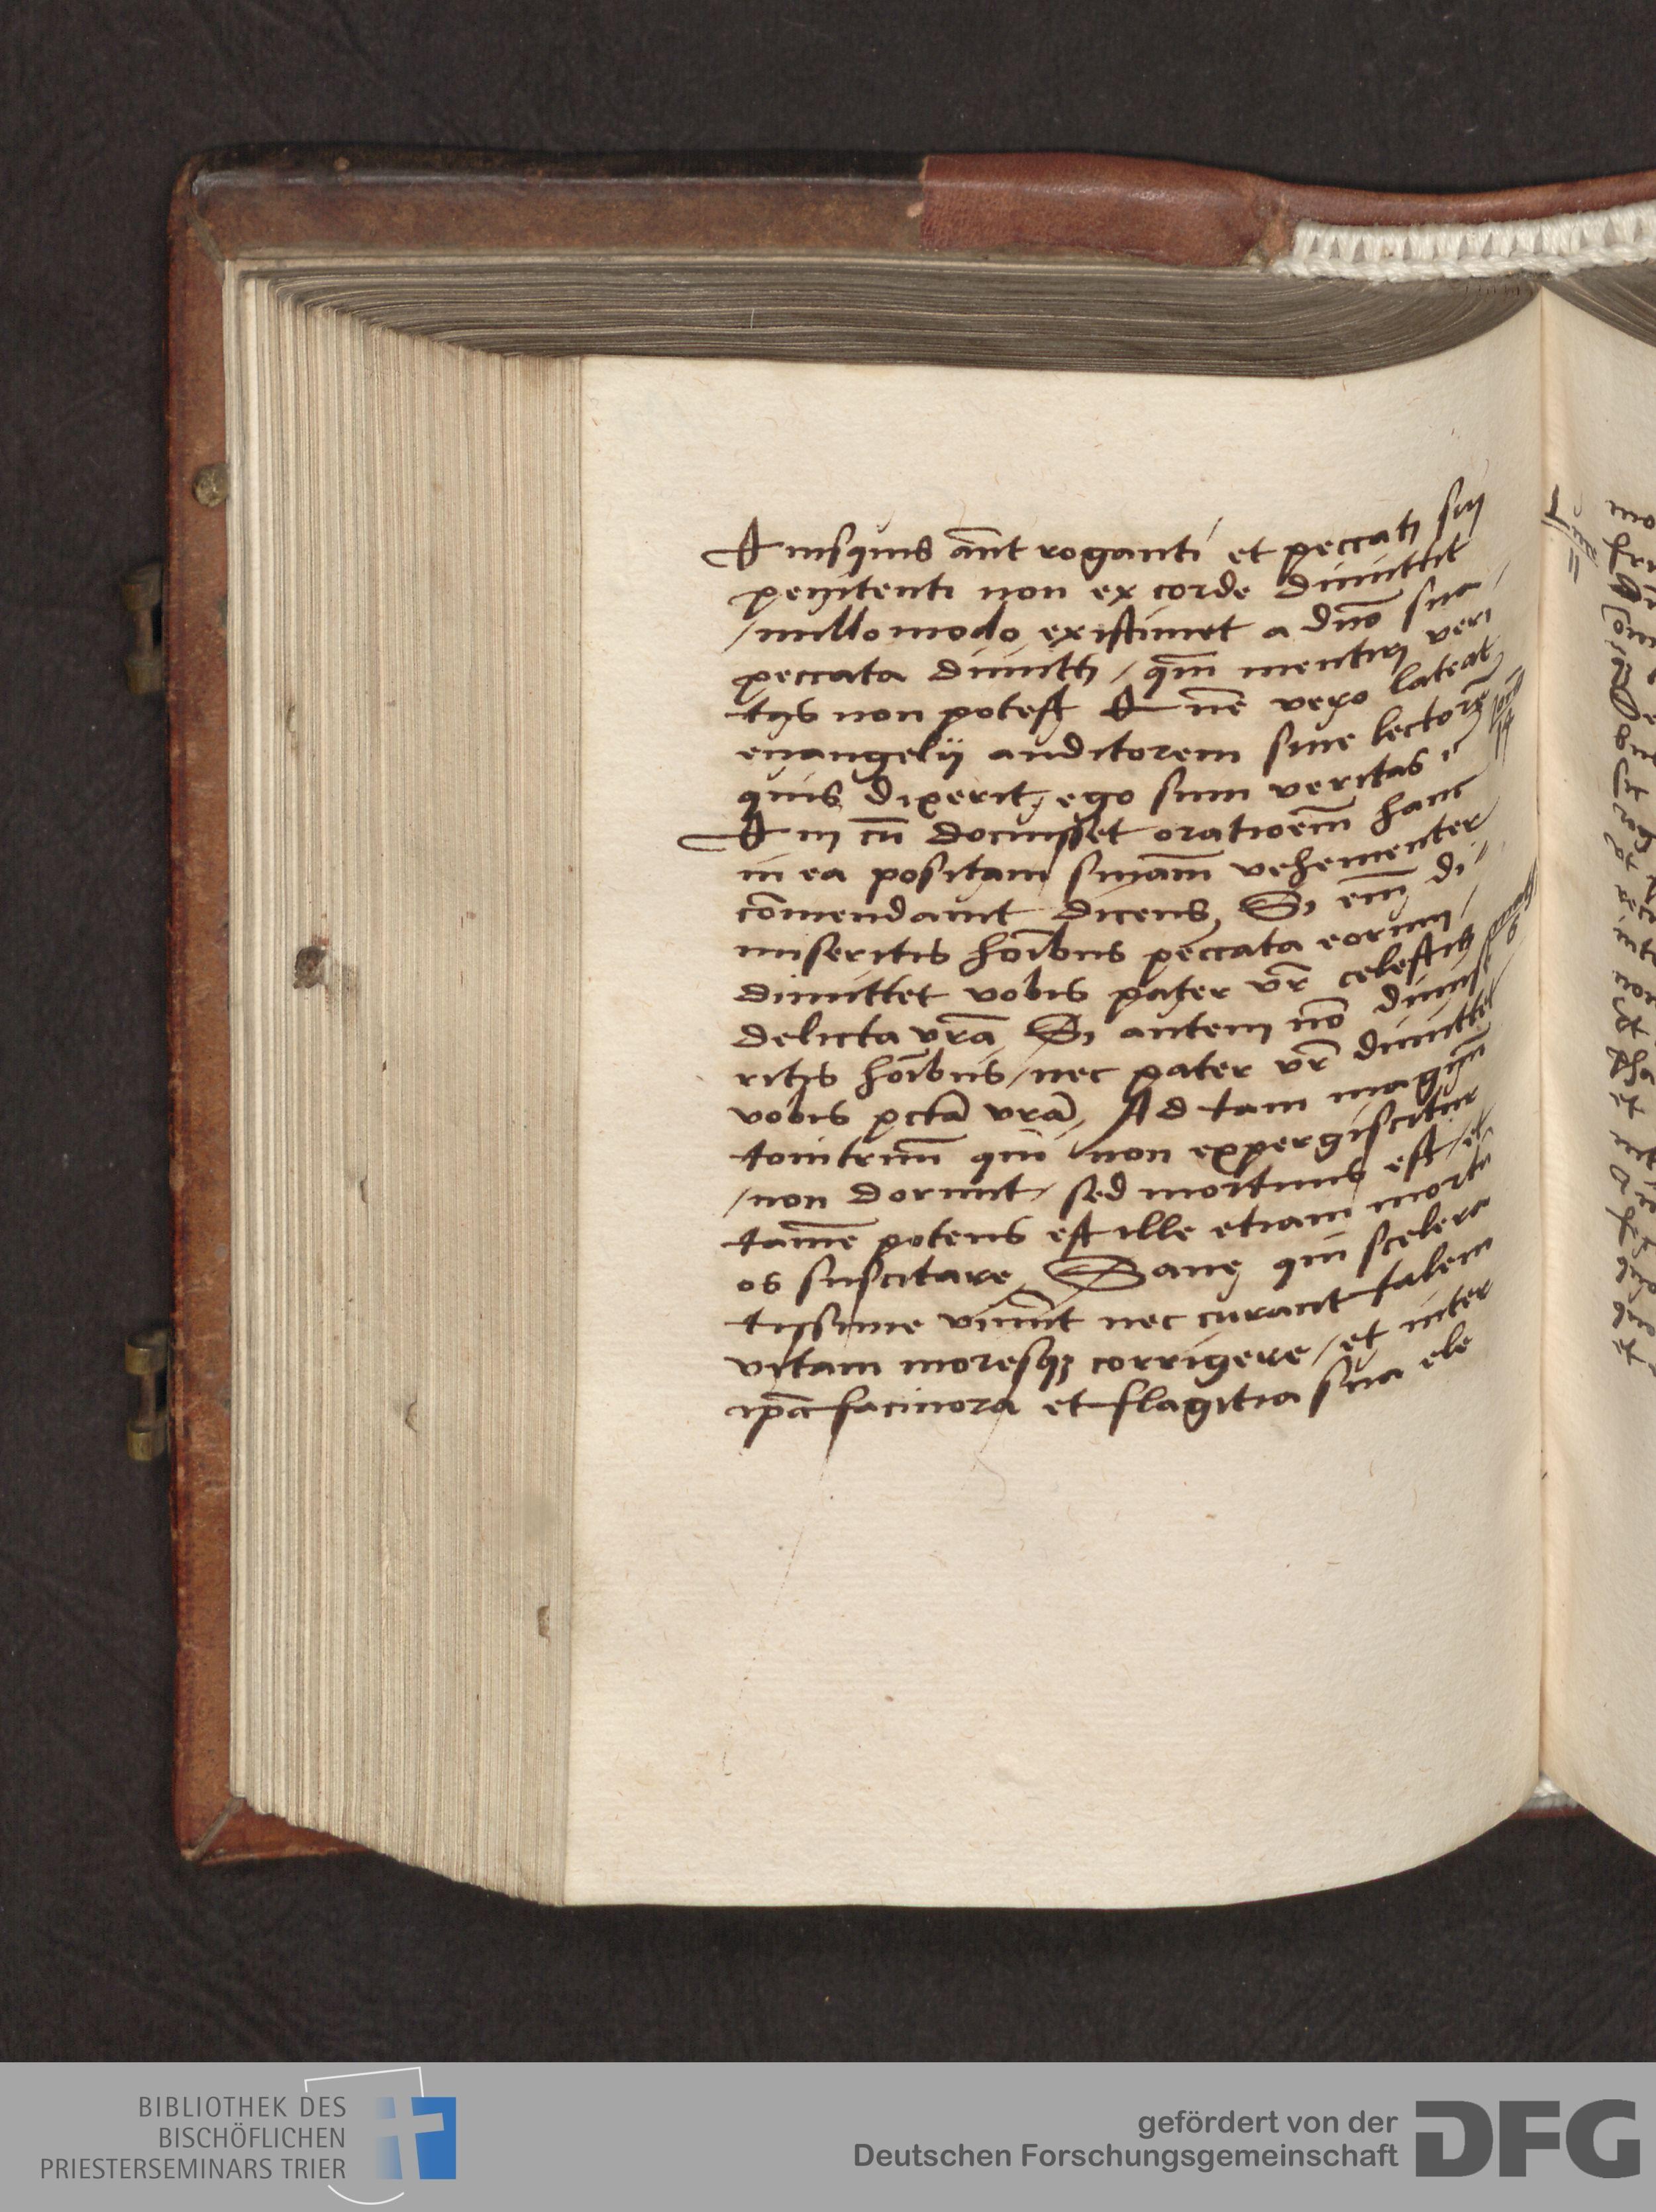 Quisquis aūt roganti et peccati sui
penitenti non ex corde dimittit
nullo modo existimet a dn̄o sua
peccata dimitti / qm̄ mentiri veri
tas non potest Quē vero lateat
euangelij auditorem siue lectorē
quis dixerit, ego sum veritas
Qui cū docuisset oratioem̄ hanc
in ea positam sniam̄ vehementer
cōmendauit dicens, Si em̄ di
miseritis hoībus peccata eorum /
dimittet vobis pater vr̄ celestis
delicta vrā Si autem nō dimise
ritis hoībus / nec pater vr̄ dimittet
vobis pctā vrā, Ad tam magnū
tonitruū qui non expergiscitur
non dormit / sed mortuus est / et
tamē potens est ille etiam mortu
os suscitare, Sane qui scelera
tissime viuūt nec curant talem
vitam moresqꝫ corrigere / et inter
ipā facinora et flagitia sua ele
BIBLIOTHEK DES
BISCHÖFLICHEN
PRIESTERSEMINARS TRIER
gefördert von der
Deutschen Forschungsgemeinschaft
DFG